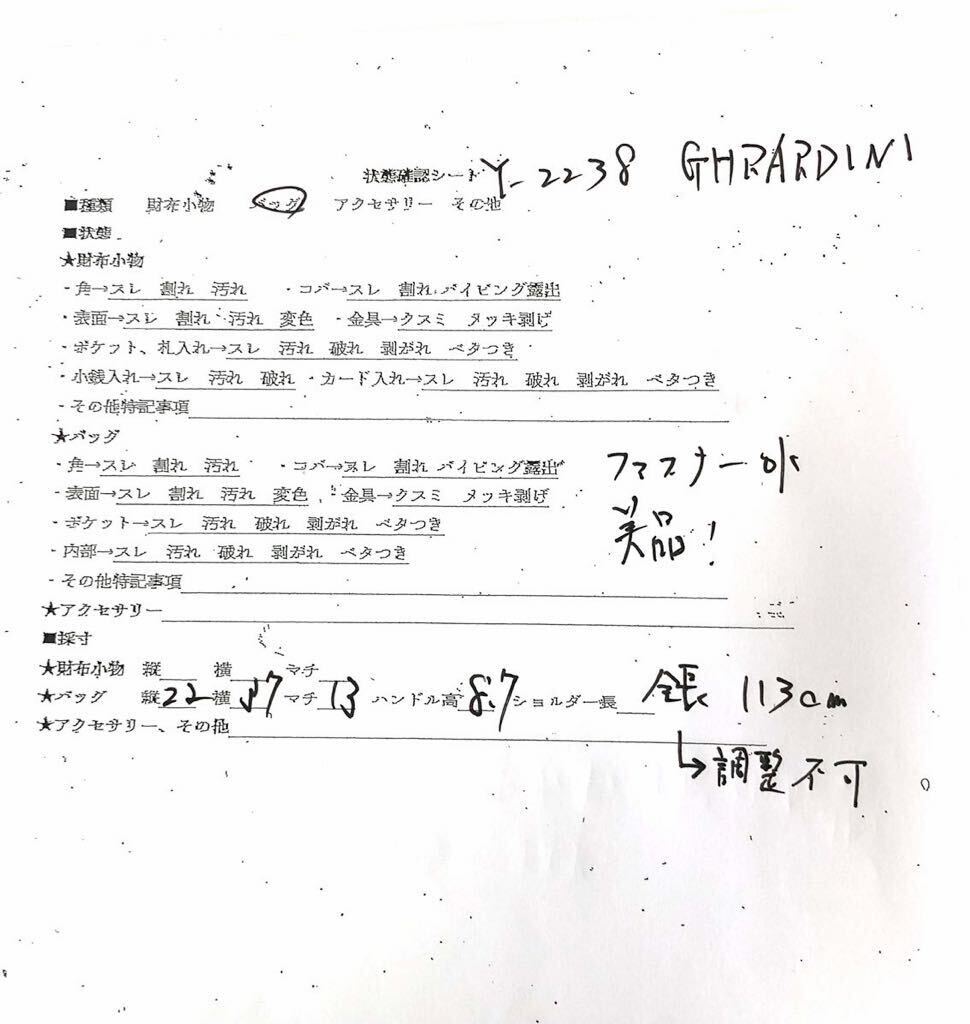 状態確認シート Y-2238 GHRARDINI
■種類 財布小物 バッグ アクセサリー その他
■状態
★財布小物
・角→スレ 割れ 汚れ ・コバ→スレ 割れ パイピング露出
・表面→スレ 割れ 汚れ 変色 ・金具→クスミ メッキ剥げ
・ポケット、札入れ→スレ 汚れ 破れ 剥がれ ベタつき
・小銭入れ→スレ 汚れ 破れ ・カード入れ→スレ 汚れ 破れ 剥がれ ベタつき
・その他特記事項
★バッグ
・角→スレ 割れ 汚れ ・コバ→スレ 割れ パイピング露出
・表面→スレ 割れ 汚れ 変色 ・金具→クスミ メッキ剥げ
・ポケット→スレ 汚れ 破れ 剥がれ ベタつき
・内部→スレ 汚れ 破れ 剥がれ ベタつき
・その他特記事項
ファスナー
美品!
★アクセサリー
■採寸
★財布小物 縦 横 マチ
★バッグ 縦22 横 マチ13 ハンドル高8.7 ショルダー長 全長 113cm
→調整不可
★アクセサリー、その他